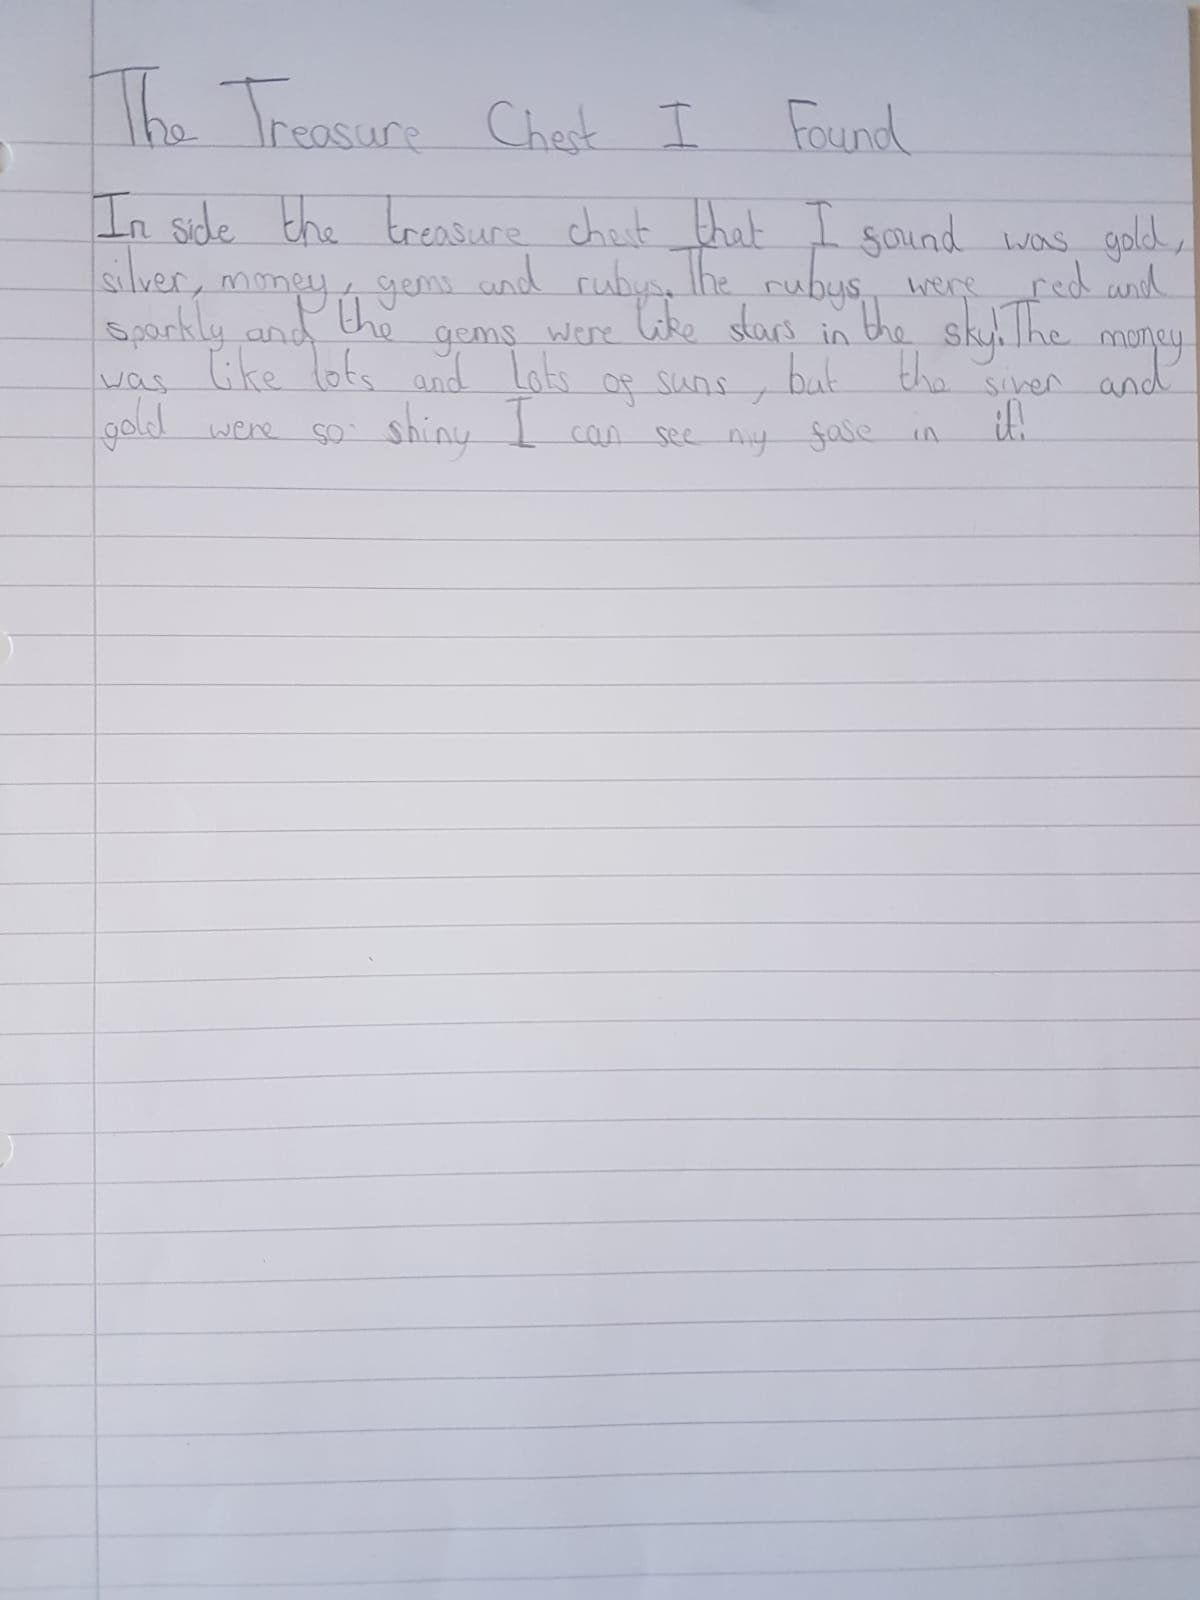 The Treasure Chest I Found
In side the treasure chest that I found was gold,
silver, money, gems and rubys. The rubys were red and
sparkly and the gems were like stars in the sky! The money
was like lots and lots of suns, but the siver and
gold were so shiny I can see my fase in it!